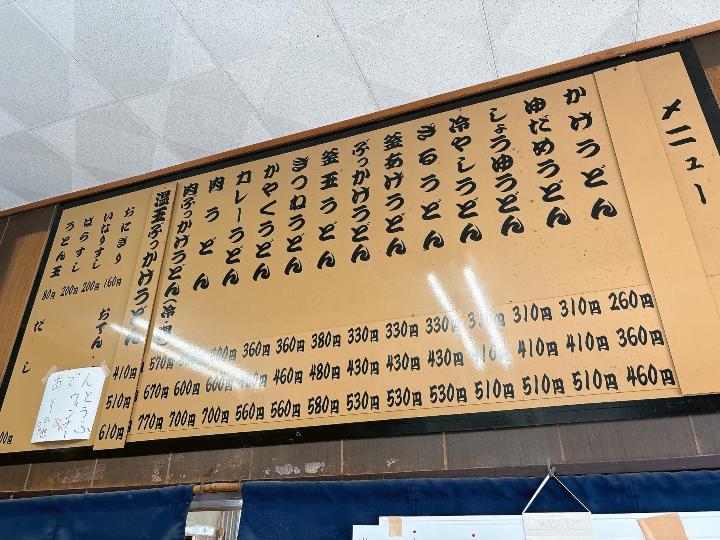 メニュー
かけうどん 260円 360円 460円
ゆだめうどん 310円 410円 510円
しょうゆうどん 310円 410円 510円
冷やしうどん 510円
ざるうどん 330円 430円 530円
釜あげうどん 330円 430円 530円
ぶっかけうどん 330円 430円 530円
釜玉うどん 380円 480円 580円
きつねうどん 360円 460円 560円
かやくうどん 360円 560円
カレーうどん 600円 700円
肉うどん 600円 700円
肉ぶっかけうどん(冷・温) 570円 670円 770円
温玉ぶっかけうどん 410円 510円 610円
おにぎり 160円
いなりすし 200円
ばらすし 200円
うどん玉 80円
おでん
だし